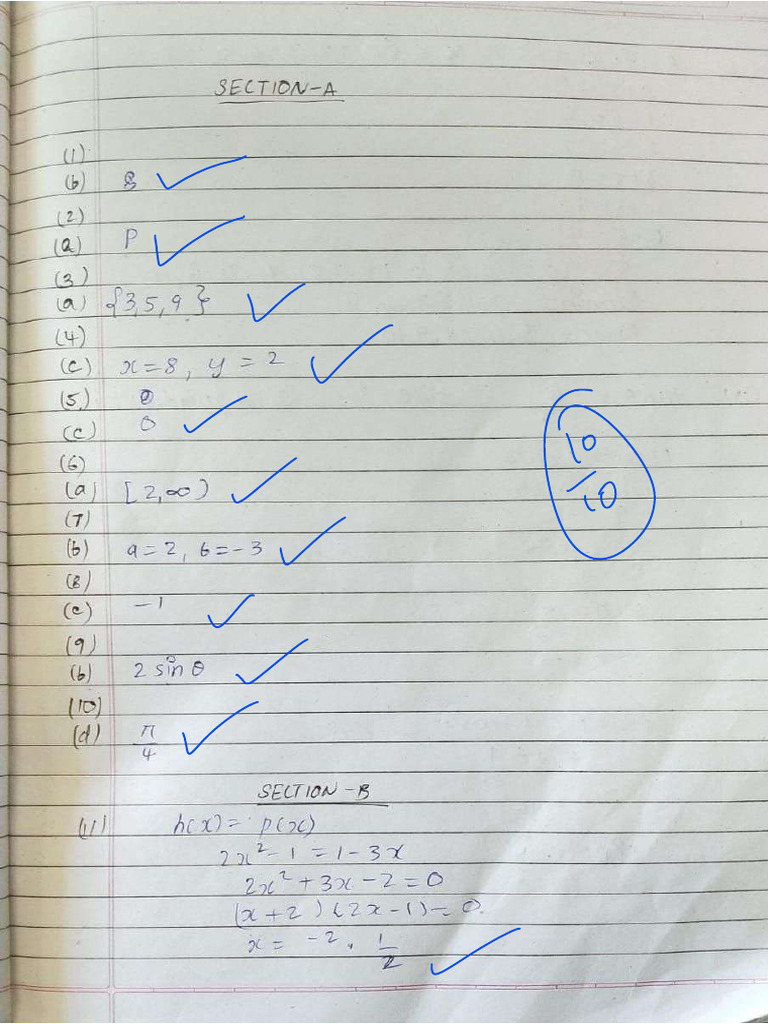 SECTION-A
(1)
(b) 8
(2)
(a) P
(3)
(a) {3,5,9}
(4)
(c) x=8, y=2
(5)
(c) 0
(6)
(a) [2,∞)
(7)
(b) a=2, b=-3
(8)
(c) -1
(9)
(b) 2 sin θ
(10)
(d) π/4
10/10
SECTION-B
(11) h(x) = p(x)
2x²-1 = 1-3x
2x²+3x-2=0
(x+2)(2x-1)=0
x = -2, 1/2